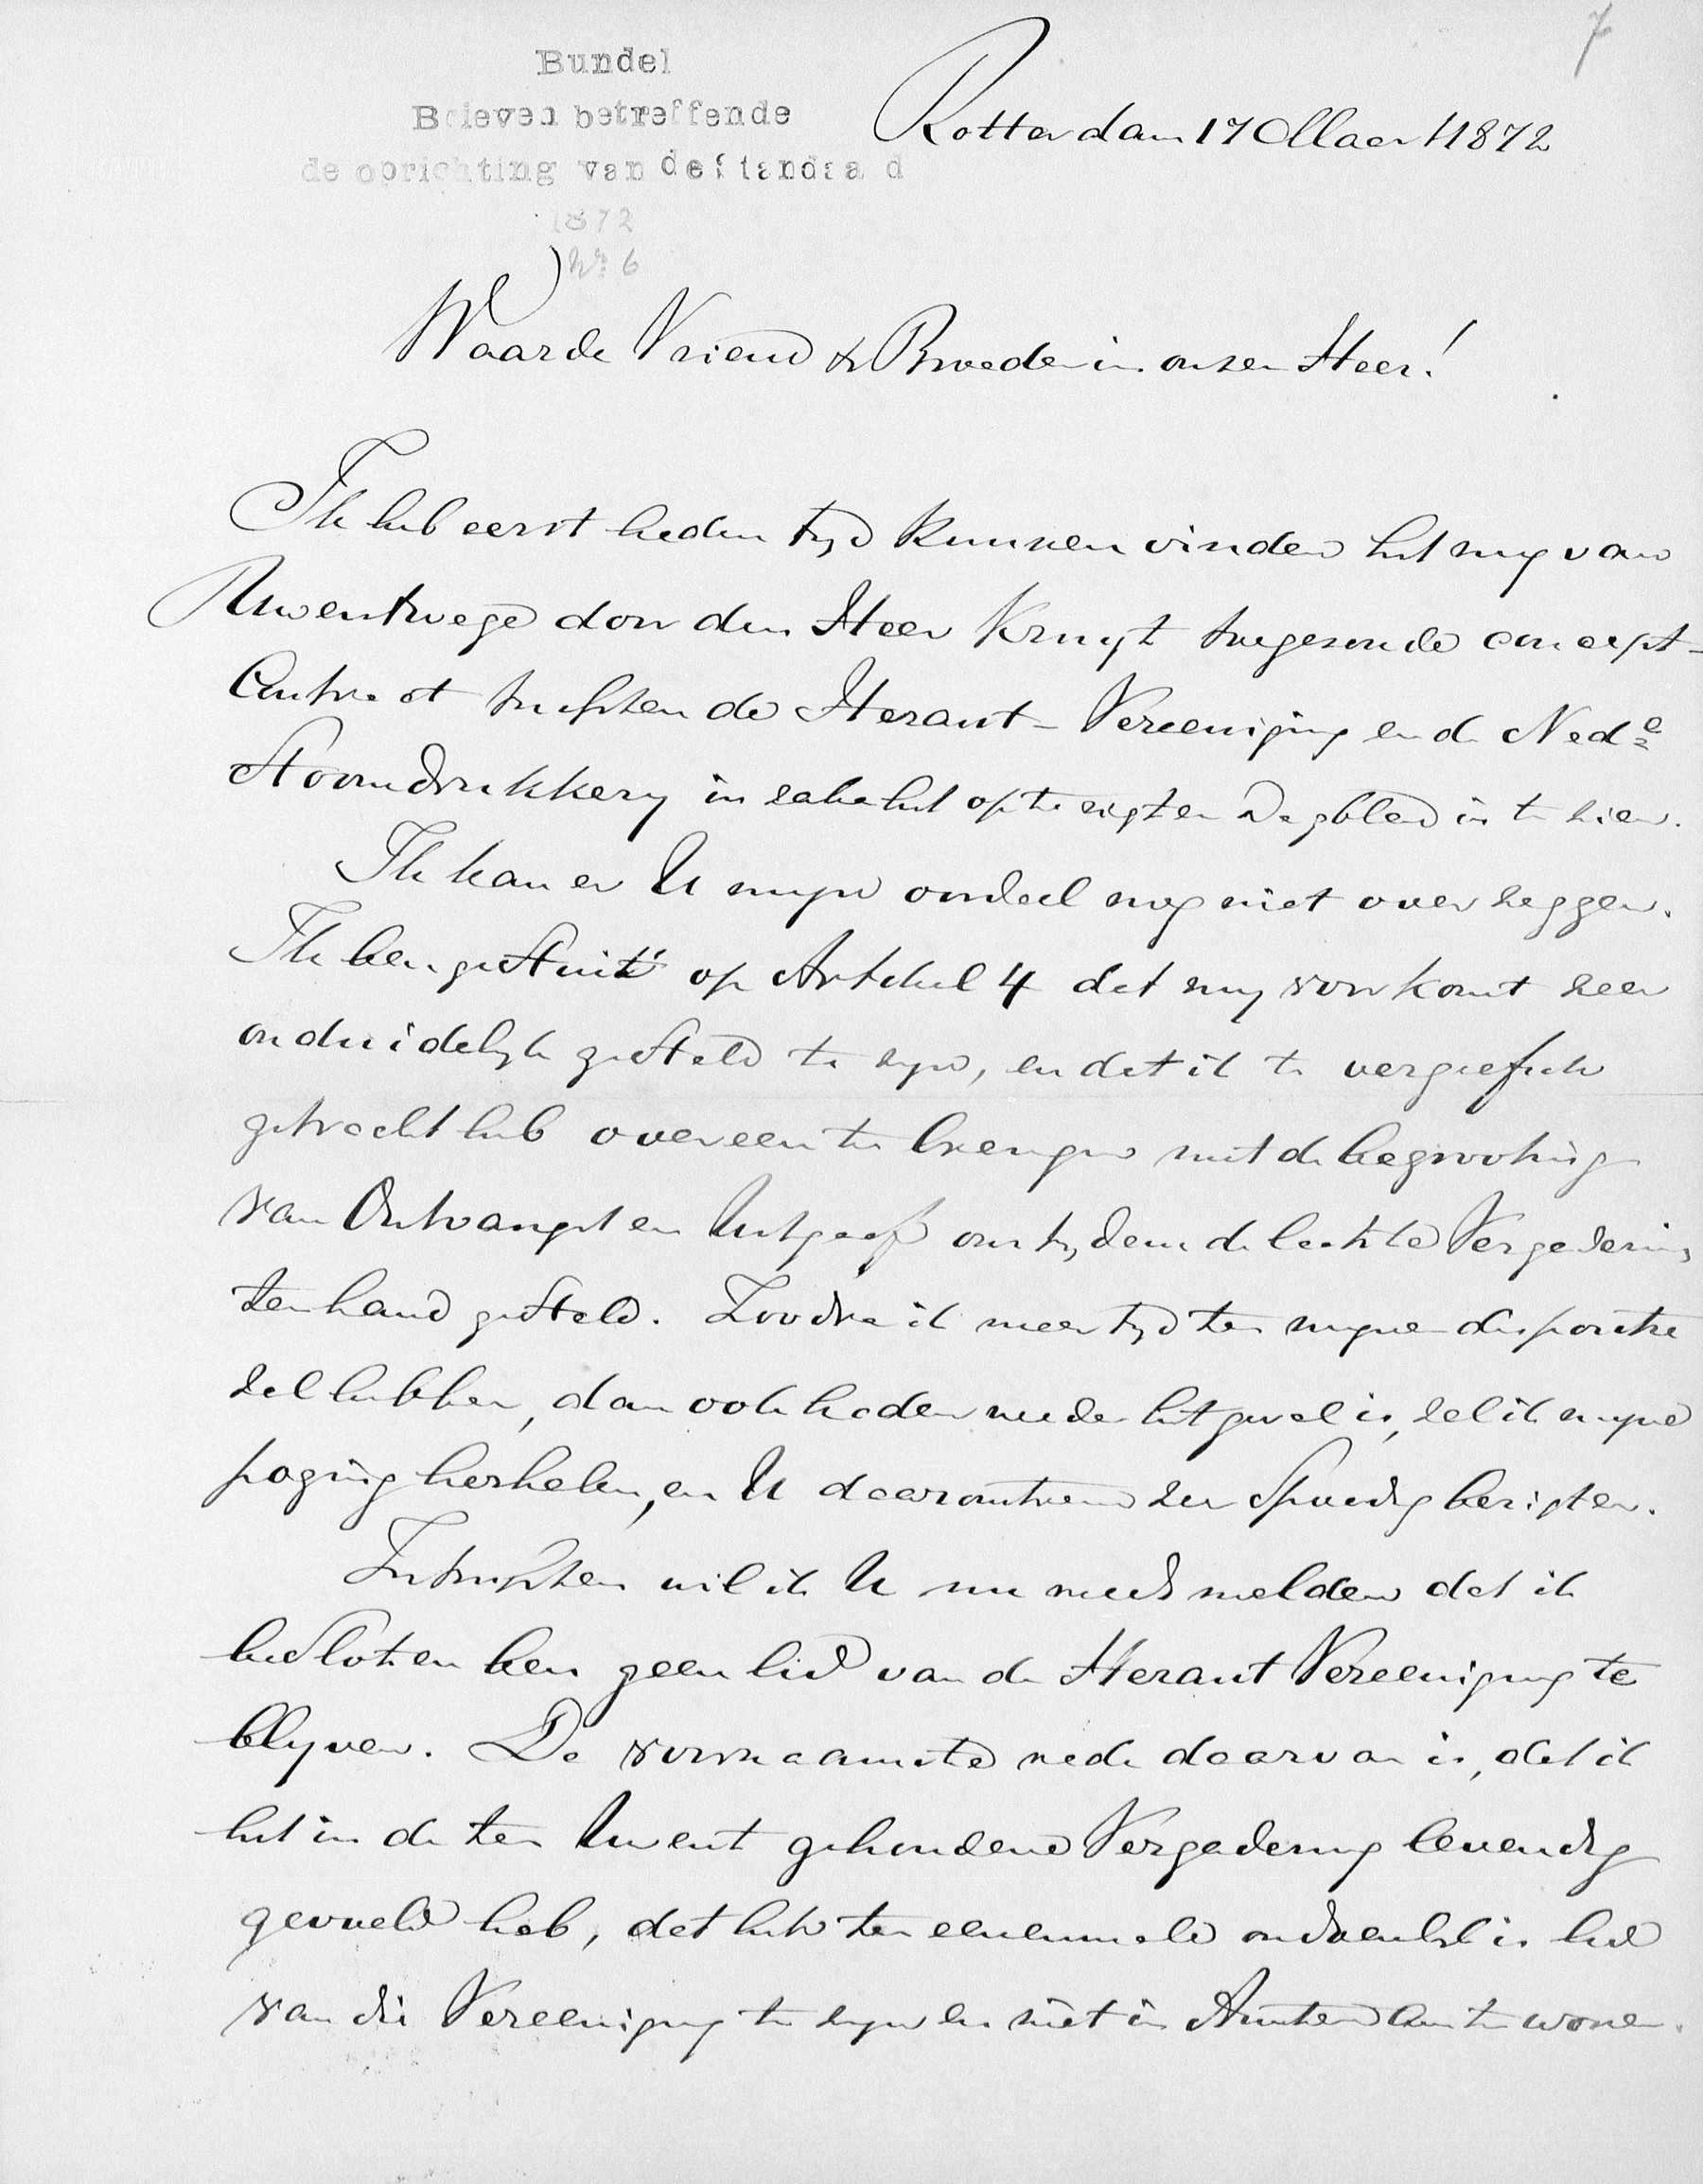 7
Bundel
Brieven betreffende
de oprichting van de Standaard
1872
No. 6
Rotterdam 17 Maart 1872
Waarde Vriend & Broeder in onzen Heer!
Ik heb eerst heden tyd kunnen vinden het my van
Uwentwege door den Heer Kruyt toegezonde concept-
Contract tusschen de Heraut-Vereeniging en de Nede
Stoomdrukkery in zake het op te rigten Dagblad in te zien.
Ik kan er U myn oordeel nog niet over zeggen.
Ik ben gestuit op Artikel 4 dat my voorkomt zeer
onduidelyk gesteld te zyn, en dat ik te vergeefsch
getracht heb overeen te brengen met de begrooting
van Ontvangst en Uitgaaf ons tydens de laatste Vergadering
ter hand gesteld. Zoodra ik meer tyd ter myner dispositie
zal hebben, dan ook heden weder het geval is, zal ik myne
poging herhalen, en U daaromtrend zeer spoedig berigten.
Intusschen wil ik U nu reeds melden dat ik
besloten ben geen lid van de Heraut Vereeniging te
blyven. De voornaamste rede daarvan is, dat ik
het in de ten Uwent gehoudene Vergadering levendig
gevoeld heb, dat het ten eenenmale ondoenlyk is lid
van die Vereeniging te zyn en niet in Amsterdam te wonen.